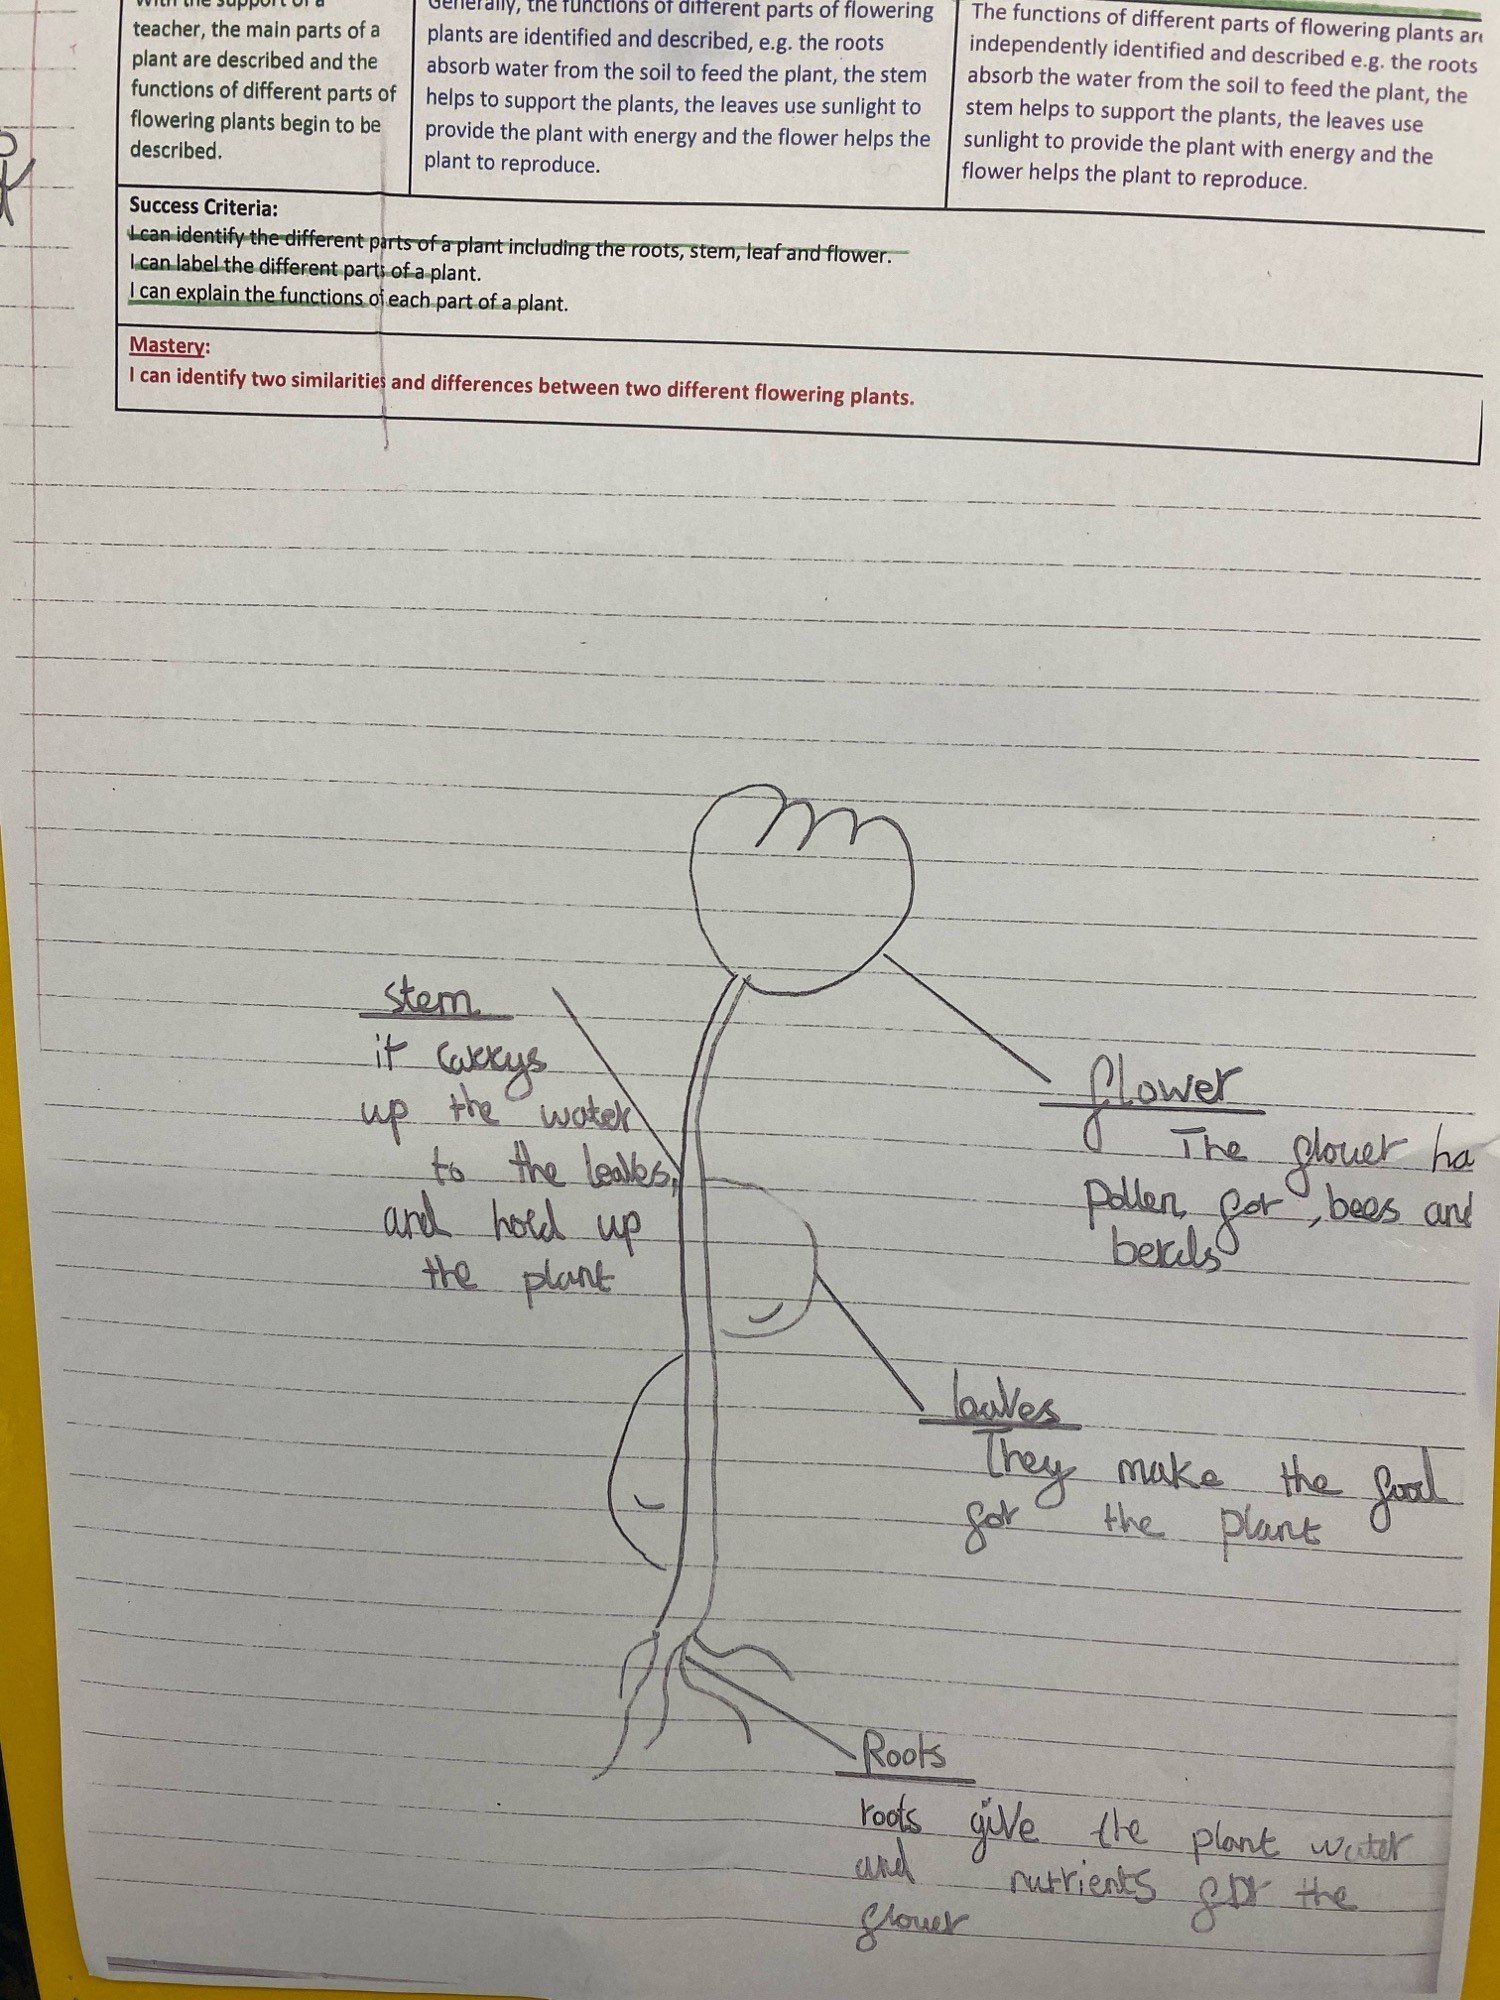 With the support of a
teacher, the main parts of a
plant are described and the
functions of different parts of
flowering plants begin to be
described.
Generally, the functions of different parts of flowering
plants are identified and described, e.g. the roots
absorb water from the soil to feed the plant, the stem
helps to support the plants, the leaves use sunlight to
provide the plant with energy and the flower helps the
plant to reproduce.
The functions of different parts of flowering plants are
independently identified and described e.g. the roots
absorb the water from the soil to feed the plant, the
stem helps to support the plants, the leaves use
sunlight to provide the plant with energy and the
flower helps the plant to reproduce.
Success Criteria:
I can identify the different parts of a plant including the roots, stem, leaf and flower.
I can label the different parts of a plant.
I can explain the functions of each part of a plant.
Mastery:
I can identify two similarities and differences between two different flowering plants.
stem
it carrys
up the water
to the leaves,
and hold up
the plant
flower
The flouer ha
pollen for , bees and
berds
leaves
They make the food
for the plant
Roots
roots give the plant water
and nutrients for the
flouer